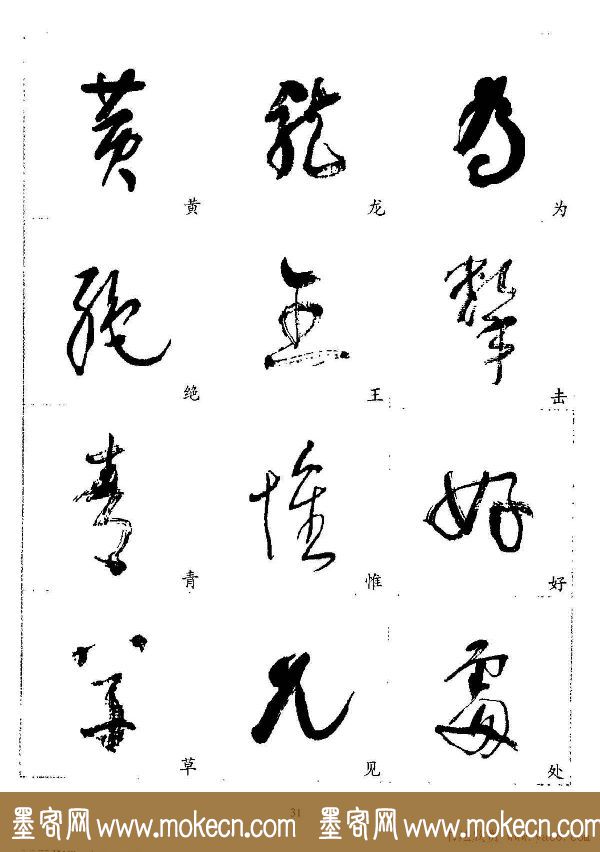 黄 龙 为
绝 王 击
青 惟 好
草 见 处
31
墨客网www.mokecn.com 墨客网www.mokecn.com